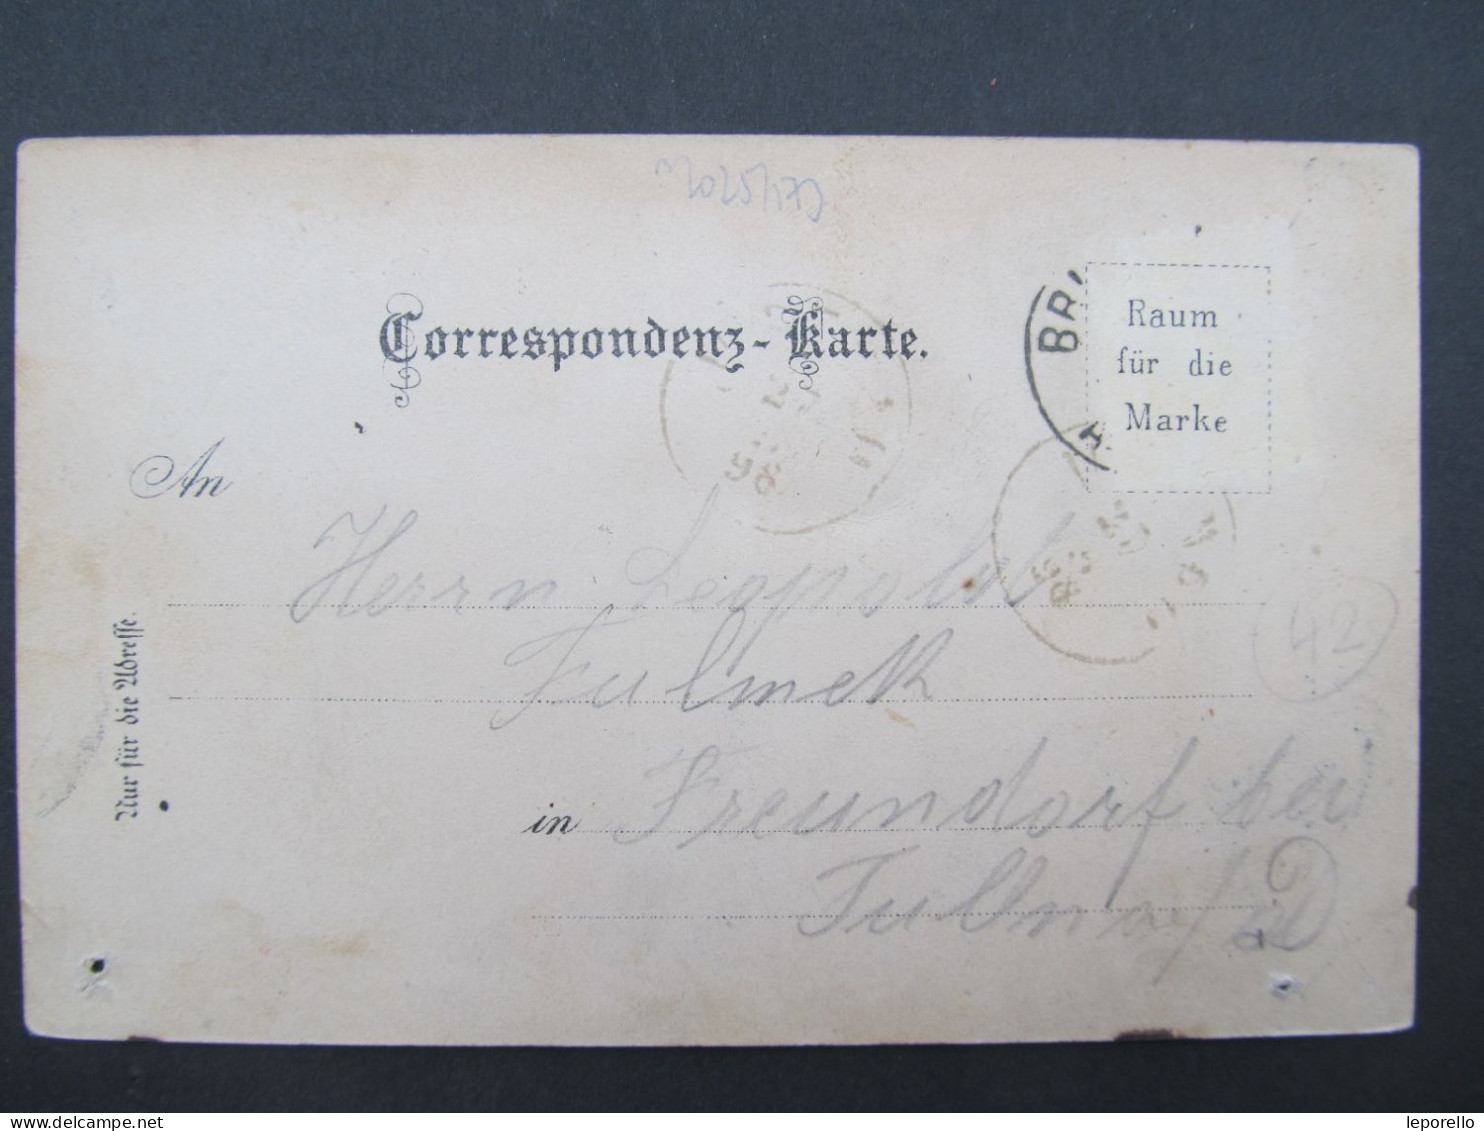 Correspondenz-Karte.
Raum
für die
Marke
98
An
Herrn Leopold
Fulmek
in Freundorf bei
Tulln a/D
42
Nur für die Adresse.
leporello